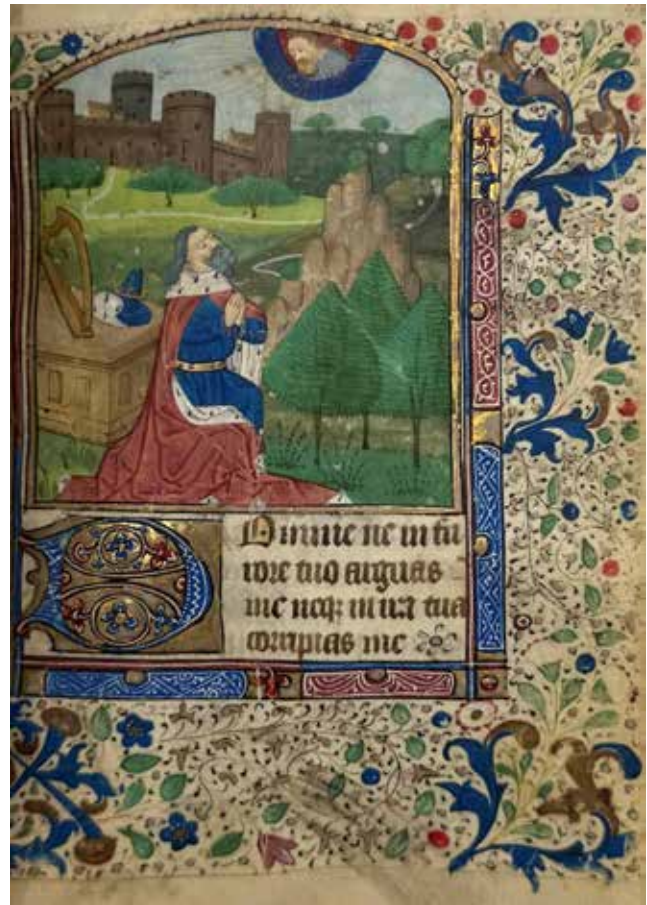 DOmine ne in fu
rore tuo arguas
me neqꝫ in ira tua
corripias me